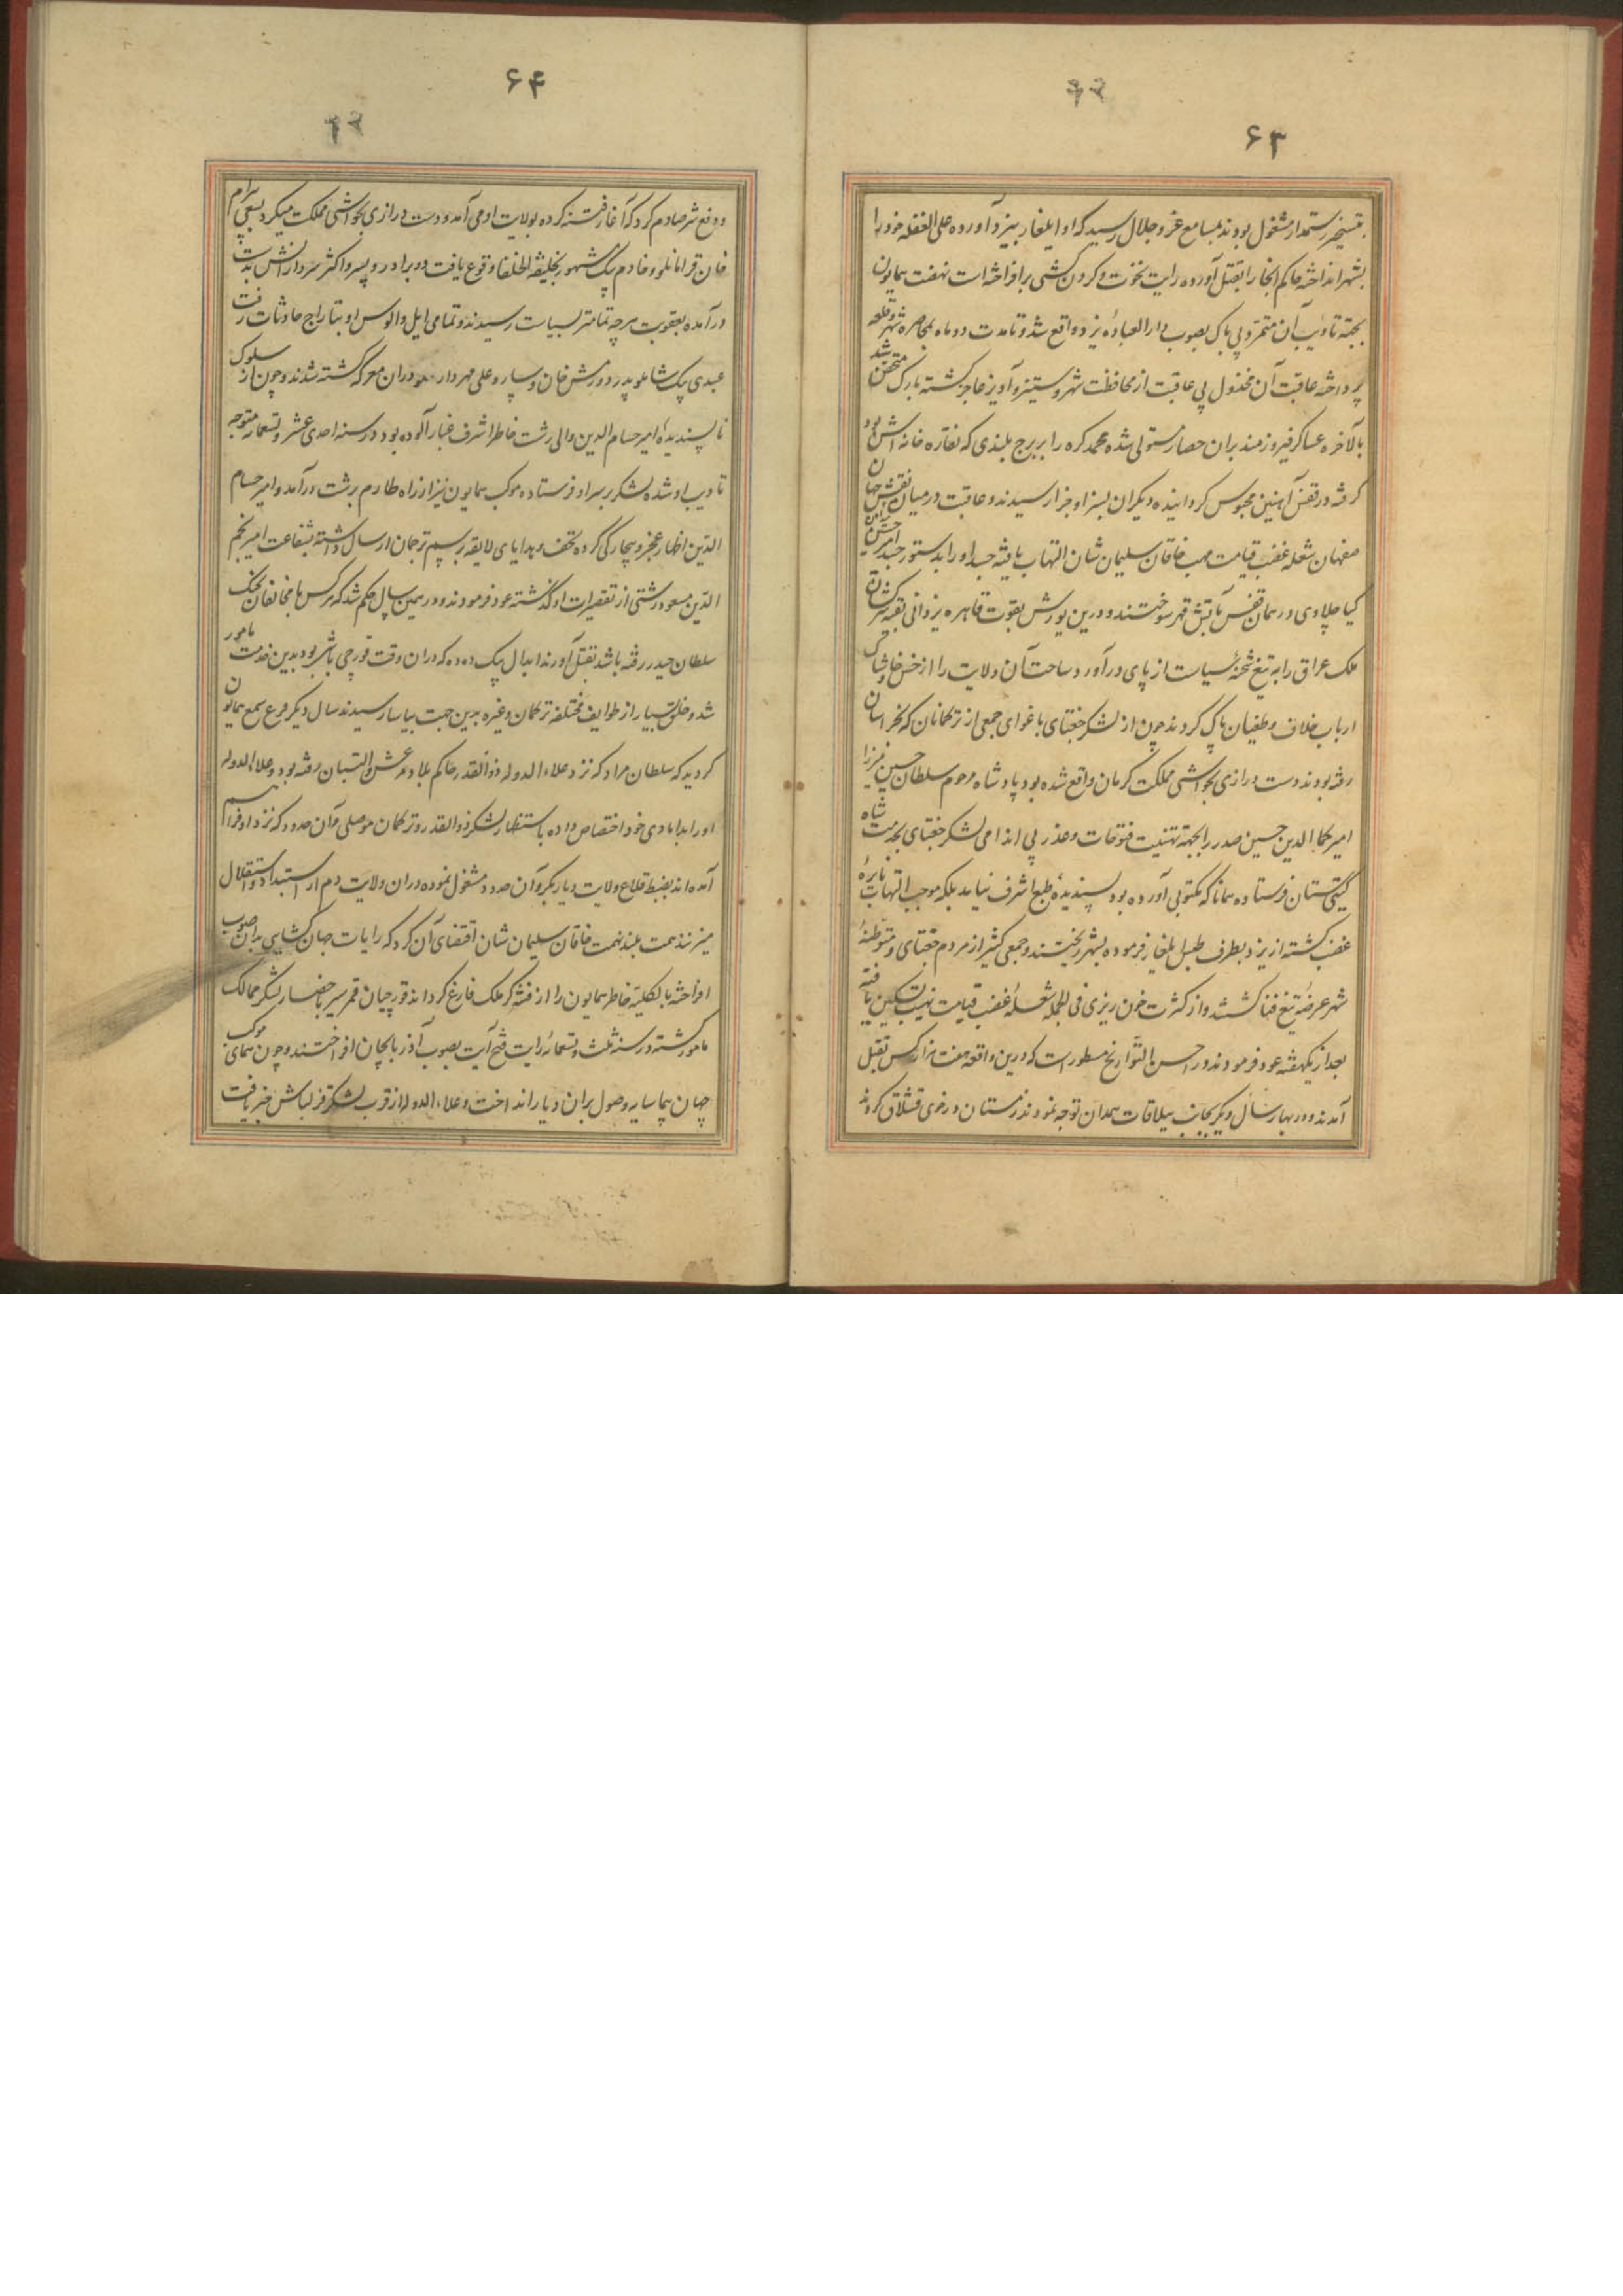 ۶۳
بتسخیر رستمدار مشغول بودند بمسامع عز و جلال رسید که او ایلغار بیزد آورده علی الغفله خود را
بشهر انداخته حاکم آنجا را بقتل آورده رایت نخوت و گردن کشی برافراخته است نهضت همایون
بجهة تادیب آن متمرد بی باک بصوب دار العباده یزد واقع شد و تا مدت دو ماه بمحاصره شهر و قلعه
پرداخته عاقبت آن مخذول بی عاقبت از محافظت شهر و ستیز و آویز عاجز گشته بارک متحصن شد
بالآخره عساکر فیروزمند بران حصار مستولی شده محمد کره را بر برج بلندی که نقاره خانه اش بود
گرفته در قفس آهنین محبوس گردانیده دیگران بسزا و جزا رسیدند و عاقبت در میدان نقش جهان
صفهان شعله غضب قیامت مهب خاقان سلیمان شان التهاب یافته جسد او را بدستور جسد امیر حسین
کیا چلاوی در همان قفس بآتش قهر سوختند و درین یورش بقوت قاهره یزدانی بقیه سرکشان
ملک عراق را به تیغ شحنهٔ سیاست از پای درآورد و ساحت آن ولایت را از خس و خاشاک
ارباب خلاف و طغیان پاک کردند چون از لشکر جغتای باغوای جمعی از ترکمانان که بخراسان
رفته بودند دست درازی بحواشی مملکت کرمان واقع شده بود پادشاه مرحوم سلطان حسین میرزا
امیر کمال الدین حسین صدر را بجهة تهنیت فتوحات و عذر بی اندامی لشکر جغتای بخدمت شاه
گیتی ستان فرستاده همانا که مکتوبی آورده بود پسندیدهٔ طبع اشرف نیامد بلکه موجب التهاب نایرهٔ
غضب گشته از یزد بطرف طبس ایلغار فرموده بشهر ریختند و جمعی کثیر از مردم جغتای و متوطنهٔ
شهر عرضهٔ تیغ فنا گشتند و از کثرت خون ریزی فی الجمله شعلهٔ غضب قیامت نهیب تسکین یافته
بعد از یکهفته عود فرمودند و در احسن التواریخ مسطور است که درین واقعه هفت هزار کس بقتل
آمدند و در بهار سال دیگر بجانب ییلاقات همدان توجه نمودند زمستان در خوی قشلاق کردند
۶۴
و دفع شر صارم کرد که آغاز فتنه کرده بولایت او می آمد و دست درازی بحواشی مملکت میکرد بسعی بیرام
خان قرامانلو و خادم بیک مشهور بخلیفة الخلفا وقوع یافت دو برادر و پسر و اکثر سردارانش بدست
درآمده بعقوبت هرچه تمامتر بسیاست رسیدند و تمامی ایل و الوس او بتاراج حادثات رفت
عبدی بیک شاملو پدر دورمش خان و سارو علی مهردار دران معرکه کشته شدند و چون از سلوک
ناپسندیدهٔ امیر حسام الدین والی رشت خاطر اشرف غبار آلوده بود در سنه احدی عشر و تسعمائه متوجه
تادیب او شده لشکر بر سر او فرستاده موکب همایون نیز از راه طارم برشت درآمد و امیر حسام
الدین اظهار عجز و بیچارگی کرده تحف و هدایای لایقه برسم ترجمان ارسال داشته بشفاعت امیر نجم
الدین مسعود رشتی از تقصیرات او گذشته عود فرمودند و در همین سال حکم شد که هر کس با مخالفان بجنگ
سلطان حیدر رفته باشد بقتل آورند ابدال بیک دده که دران وقت قورچی باشی بود بدین خدمت مامور
شد و خلق بسیار از طوایف مختلفه ترکمان و غیره بدین جهت بیاسا رسیدند سال دیگر قرع سمع همایون
گردید که سلطان مراد که نزد علاء الدوله ذوالقدر حاکم بلاد مرعش و البستان رفته بود و علاء الدوله
او را بدامادی خود اختصاص داده باستظهار لشکر ذوالقدر و ترکمان موصلی و آن حدود که نزد او فراهم
آمده اند بضبط قلاع ولایت دیاربکر و آن حدود مشغول نموده دران ولایت دم از استبداد و استقلال
میزنند همت بلند نهمت خاقان سلیمان شان اقتضای آن کرد که رایات جهان گشایی بدان صوب
افراخته بالکلیه خاطر همایون را از فتنه گر ملک فارغ گردانند قورچیان قمر سیر باحضار لشکر ممالک
مامور گشته در سنه ثلث و تسعمائه رایت فتح آیت بصوب آذربایجان افراختند و چون موکب همای
جهان پیما سایه وصول بران دیار انداخت و علاء الدوله از قرب لشکر قزلباش خبر یافت